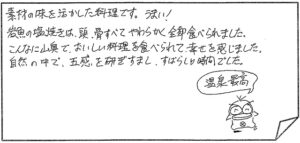 素材の味を活かした料理です。うまい!
岩魚の塩焼きは、頭、骨すべてやわらかく全部食べられました。
こんなに山奥で、おいしい料理を食べられて幸せを感じました。
自然の中で、五感を研ぎすまし、すばらしい時間でした。
温泉最高